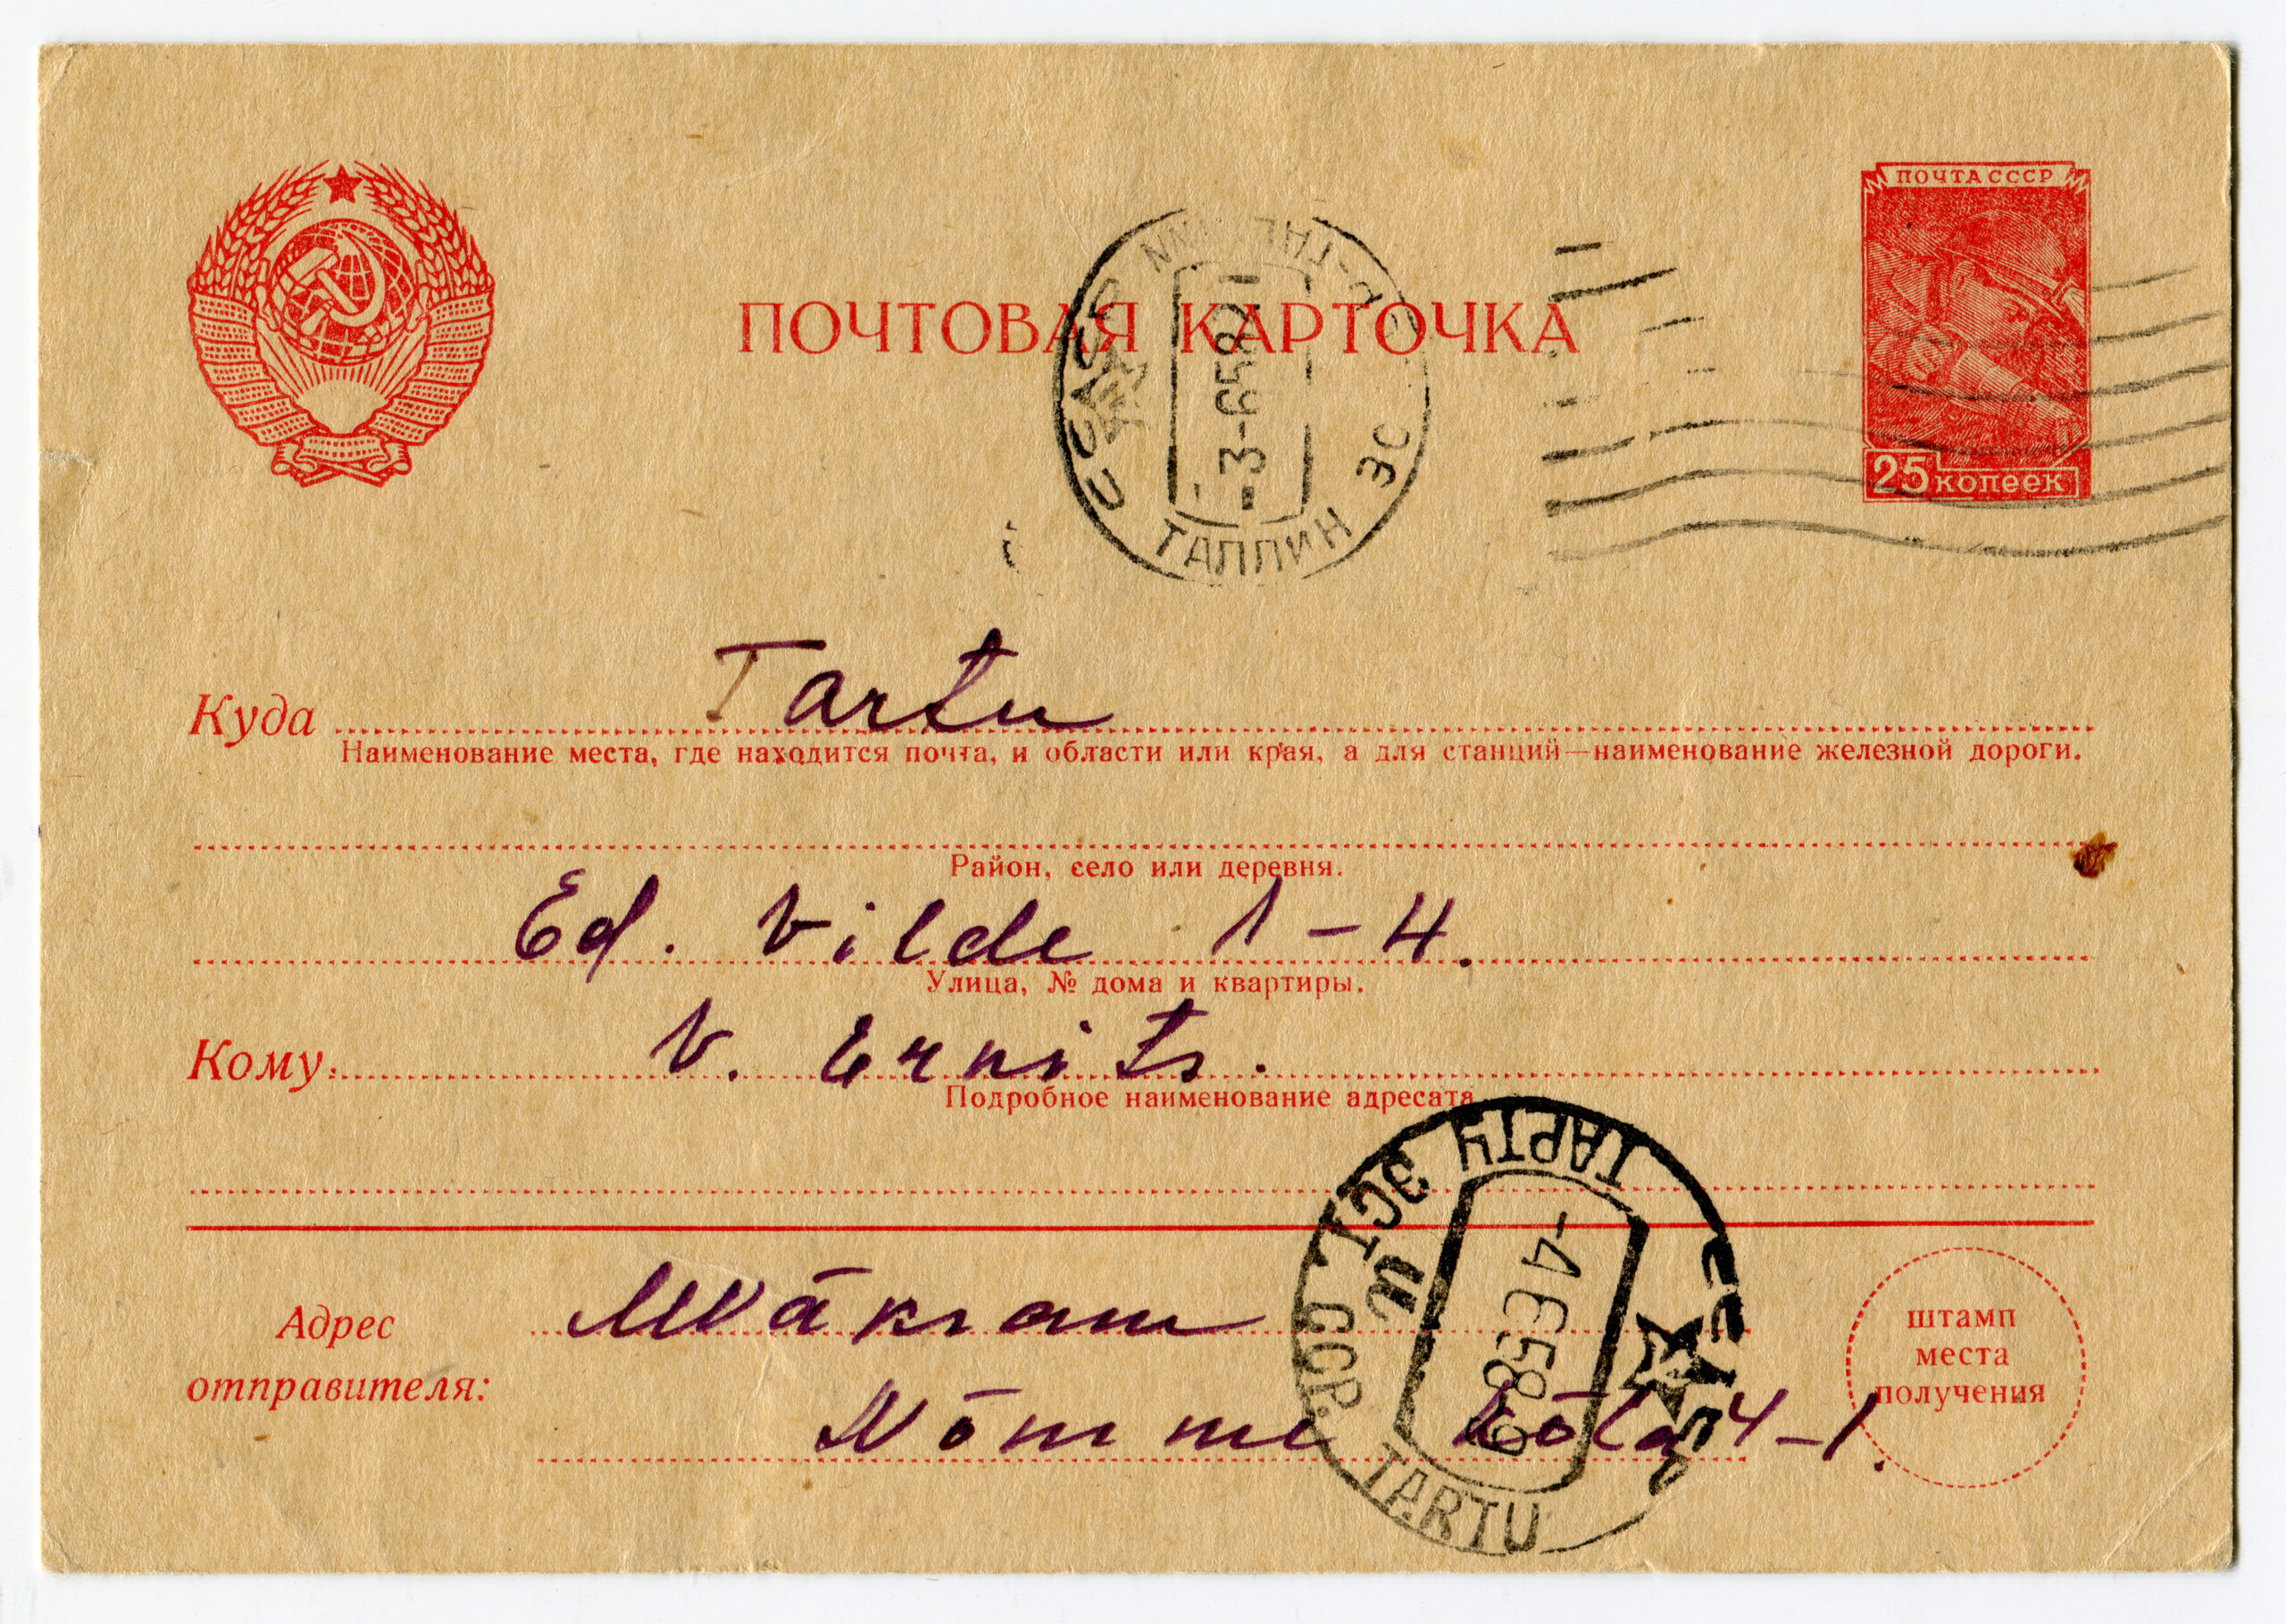 ПОЧТА СССР
25 копеек
ПОЧТОВАЯ КАРТОЧКА
ТАЛЛИН
-3-6 58 21
Куда Tartu
Наименование места, где находится почта, и области или края, а для станций—наименование железной дороги.
Район, село или деревня.
Ed. Vilde 1-4.
Улица, № дома и квартиры.
Кому: V. Ernits.
Подробное наименование адресата
ТАРТУ ЭСТ. ССР.
TARTU
Адрес
отправителя:
Nõmme 4-1.
штамп
места
получения